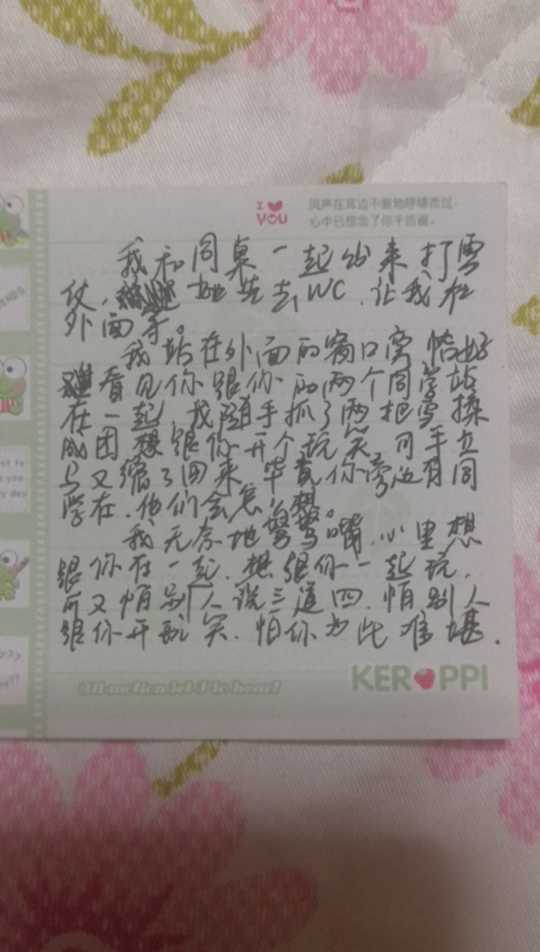 I
YOU
风声在耳边不断地呼啸而过,
心中已想念了你千百遍。
我和同桌一起出来打雪
仗, 她先去WC, 让我在
外面等。
我站在外面的窗口旁, 恰好
看见你跟你的两个同学站
在一起, 我随手抓了两把雪揉
成团, 想跟你开个玩笑, 可手立
马又缩了回来, 毕竟你旁边有同
学在, 他们会怎么想。
我无奈地努努嘴, 心里想
跟你在一起, 想跟你一起玩,
可又怕别人说三道四, 怕别人
跟你开玩笑, 怕你为此难堪.
KEROPPI